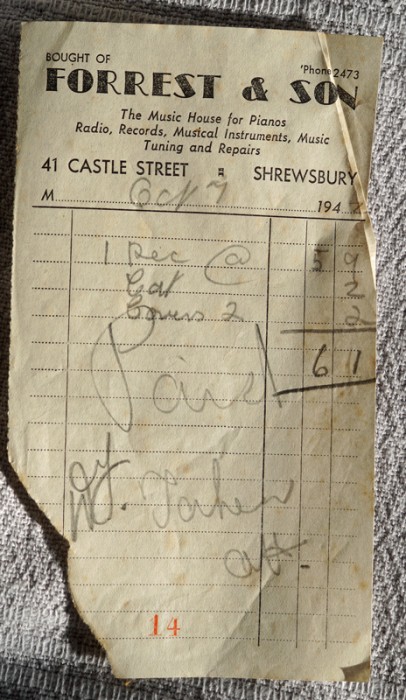 BOUGHT OF
'Phone 2473
FORREST & SON
The Music House for Pianos
Radio, Records, Musical Instruments, Music
Tuning and Repairs
41 CASTLE STREET SHREWSBURY
M Oct 7 194
1 Rec @ 5 9
Cat 2
Covers 2 2
6 1
Paid
14